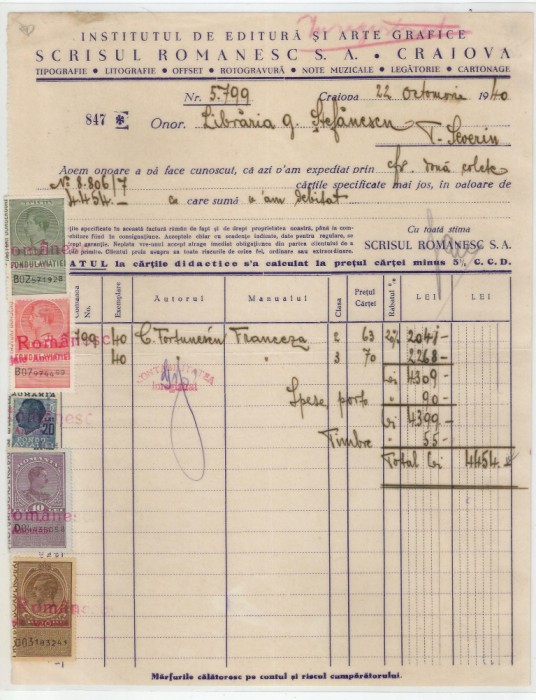 Înregistrat
INSTITUTUL DE EDITURĂ ȘI ARTE GRAFICE
SCRISUL ROMANESC S. A. • CRAIOVA
TIPOGRAFIE • LITOGRAFIE • OFFSET • ROTOGRAVURĂ • NOTE MUZICALE • LEGĂTORIE • CARTONAGE
Nr. 5.799 Craiova 22 Octomvrie 1940
847 Onor. Librăria G. Ștefănescu
T. Severin
Avem onoare a vă face cunoscut, că azi v'am expediat prin cfr. două colete
No 8.806/7 cărțile specificate mai jos, în valoare de
4454.- cu care sumă v'am debitat
Cu toată stima
SCRISUL ROMÂNESC S. A.
ATUL la cărțile didactice s'a calculat la prețul cărței minus 5% C. C. D.
Comanda No. Exemplare Autorul Manualul Clasa Prețul Cărței Rabatul % LEI LEI
799 40 C. Fortunescu Franceza 2 63 2041-
40 " 3 70 2268-
CONTABILITATEA
Înregistrat
lei 4309-
Spese porto " 90-
lei 4399-
Timbre " 55-
Total lei 4454.-
Mărfurile călătoresc pe contul și riscul cumpărătorului.
ROMANIA
Românesc
FONDUL AVIATIEI
Românesc
ROMANIA
20
ROMANIA
10
Românesc
Românesc